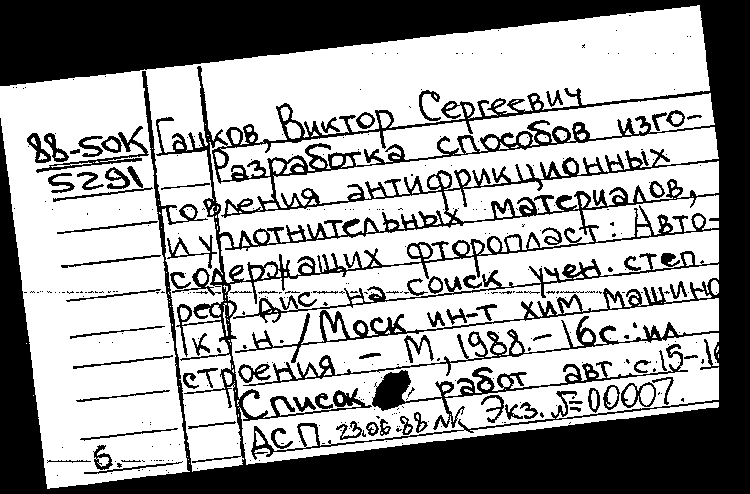 88-50К
5291
Гашков, Виктор Сергеевич
Разработка способов изго-
товления антифрикционных
и уплотнительных материалов,
содержащих фторопласт: Авто-
реф. дис. на соиск. учен. степ.
к.т.н. / Моск. ин-т хим. машино
строения. – М., 1988. – 16с.: ил.
Список работ авт.: с.15-16
ДСП. 23.06.88 №К Экз. №=00007.
б.